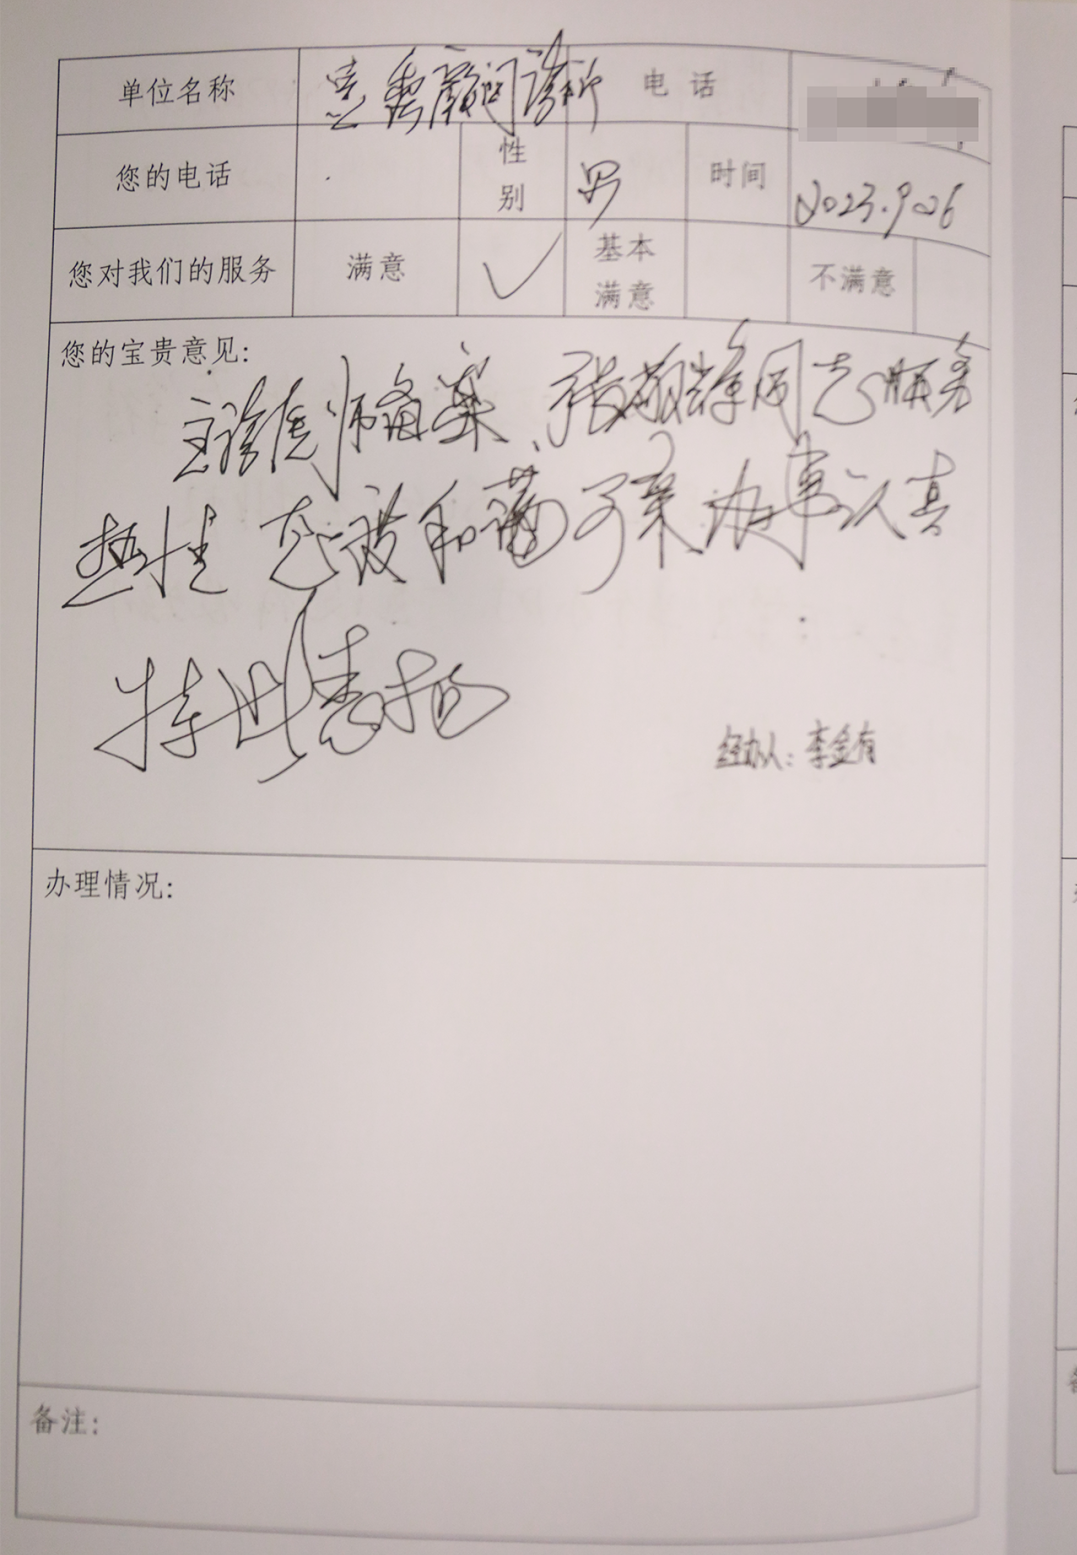 单位名称 诊所 电话
您的电话 性别 男 时间 2023.9.26
您对我们的服务 满意 ✓ 基本满意 不满意
您的宝贵意见:
主诊医师备案、张 同志服务
热情 态度和蔼可亲 办事认真
特此表扬
经办人:李金有
办理情况:
备注: